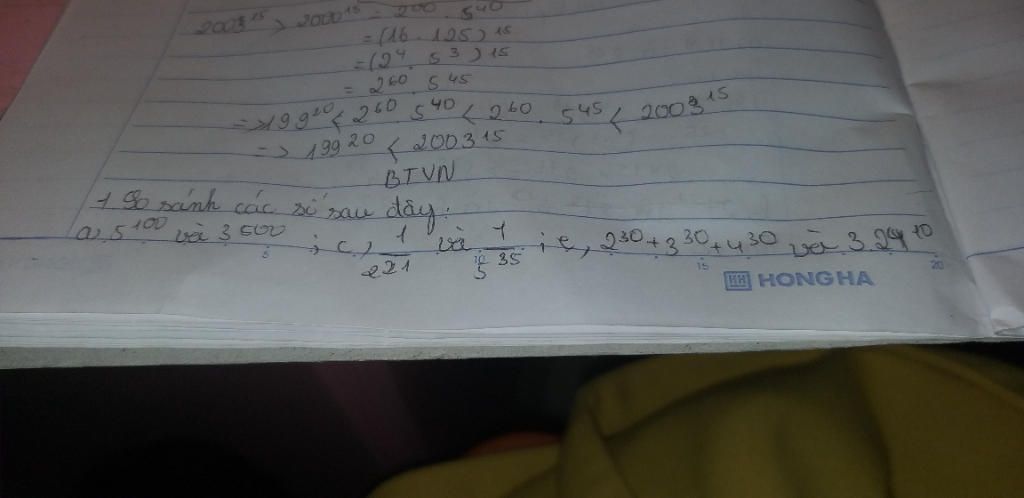 2003¹⁵ > 2000¹⁵ = 200 . 5⁴⁰
= (16 . 125)¹⁵
= (2⁴ . 5³)¹⁵
= 2⁶⁰ . 5⁴⁵
=> 199²⁰ < 2⁶⁰ . 5⁴⁰ < 2⁶⁰ . 5⁴⁵ < 2003¹⁵
=> 199²⁰ < 2003¹⁵
BTVN
1 So sánh các số sau đây:
a, 5¹⁰⁰ và 3⁵⁰⁰ ; c, 1/2²¹ và 1/5³⁵ ; e, 2³⁰ + 3³⁰ + 4³⁰ và 3.24¹⁰
5 10 15 20
HH HONG HA